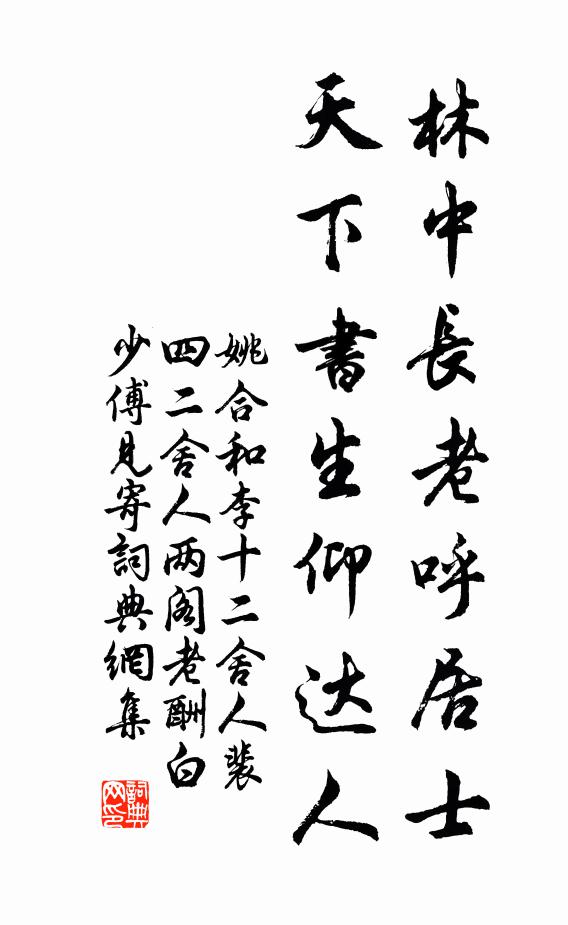 林中長老呼居士
天下書生仰达人
姚合和李十二舍人裴
四二舍人两阁老酬白
少傅見寄詞典網集
詞典
网印